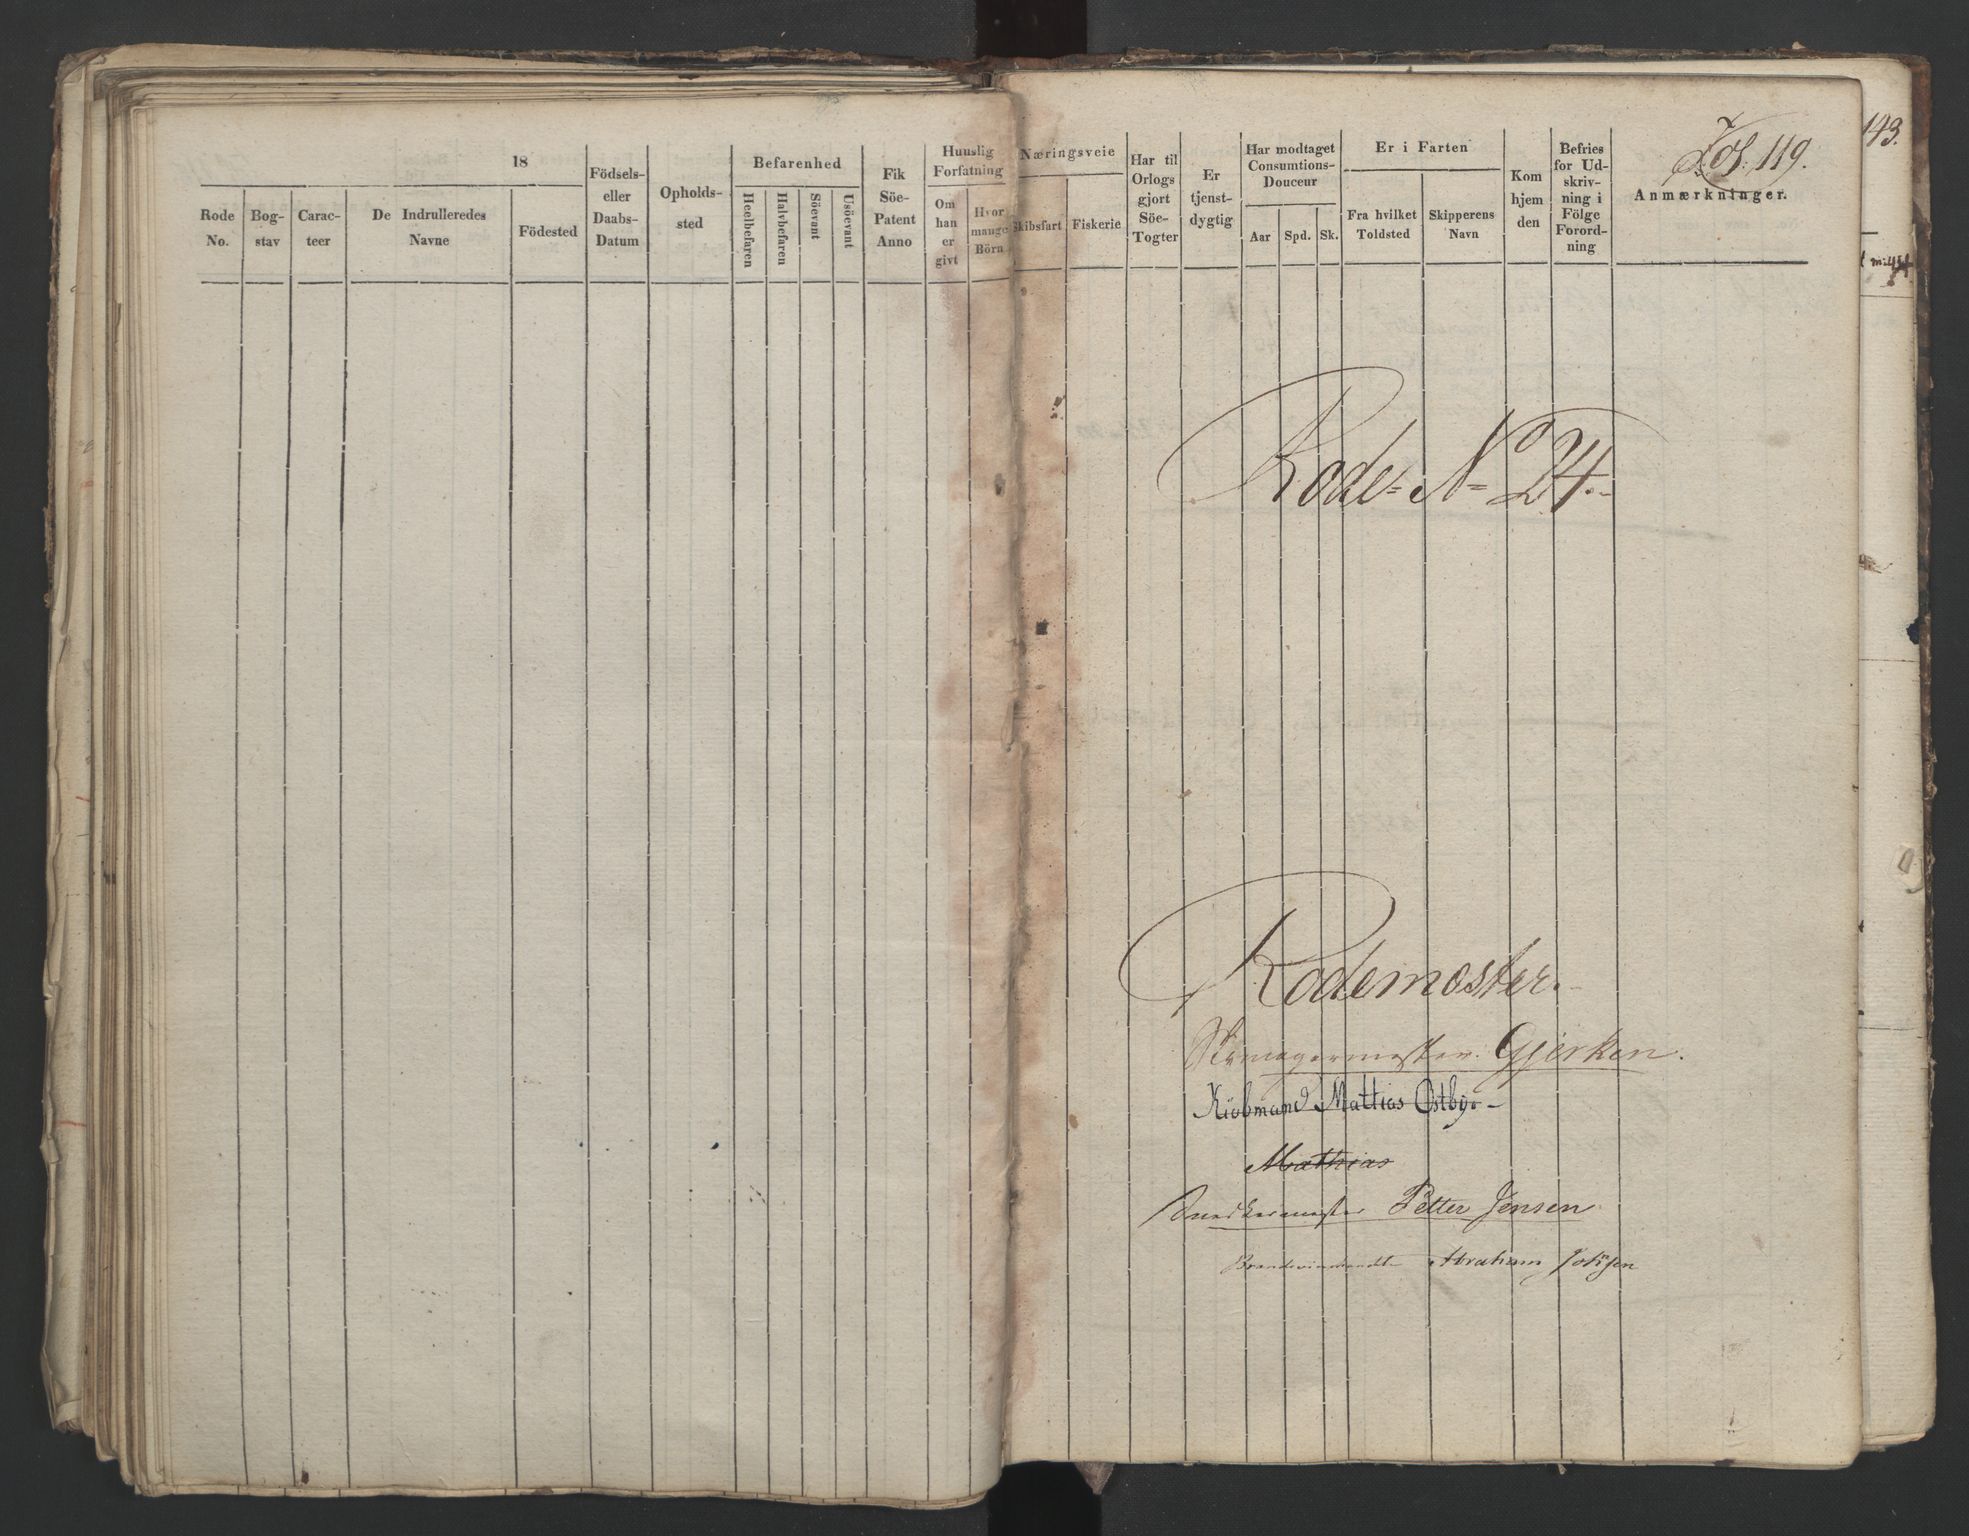 18
Rode No.
Bog- stav
Carac- teer
De Indrulleredes Navne
Födested
Födsels- eller Daabs- Datum
Opholds- sted
Befarenhed
Heelbefaren
Halvbefaren
Söevant
Usöevant
Fik Söe- Patent Anno
Huuslig Forfatning
Om han er givt
Hvor mange Börn
Næringsveie
Skibsfart
Fiskerie
Har til Orlogs gjort Söe- Togter
Er tjenst- dygtig
Har modtaget Consumtions- Douceur
Aar
Spd.
Sk.
Er i Farten
Fra hvilket Toldsted
Skipperens Navn
Kom hjem den
Befries for Ud- skriv- ning i Fölge Forord- ning
Fol: 119.
Anmærkninger.
143.
Rode= N= 24.
Rodemester.
Skomagermester. Gjerken.
Kiöbmand Mattias Ostbye
Mathias
Snedkermester Petter Jensen
Abraham